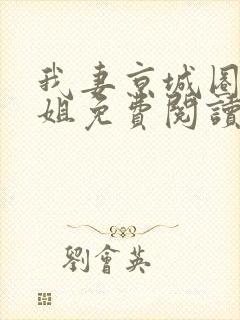 我妻京城圈
姐免費閱讀
劉會英